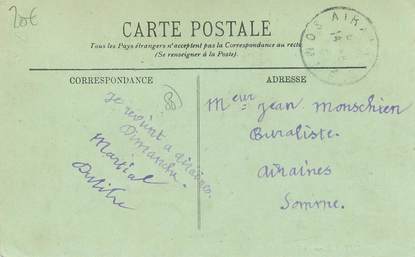 20€
CARTE POSTALE
Tous les Pays étrangers n'acceptent pas la Correspondance au recto
(Se renseigner à la Poste).
CORRESPONDANCE
ADRESSE
Je
a airaines
Dimanche.
Martial
Meur Jean Monschien
Buraliste.
Airaines
Somme.